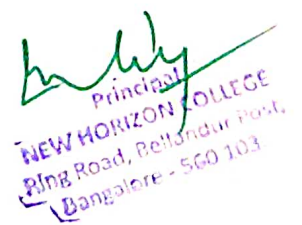 Principal
NEW HORIZON COLLEGE
Ring Road, Bellandur Post,
Bangalore - 560 103